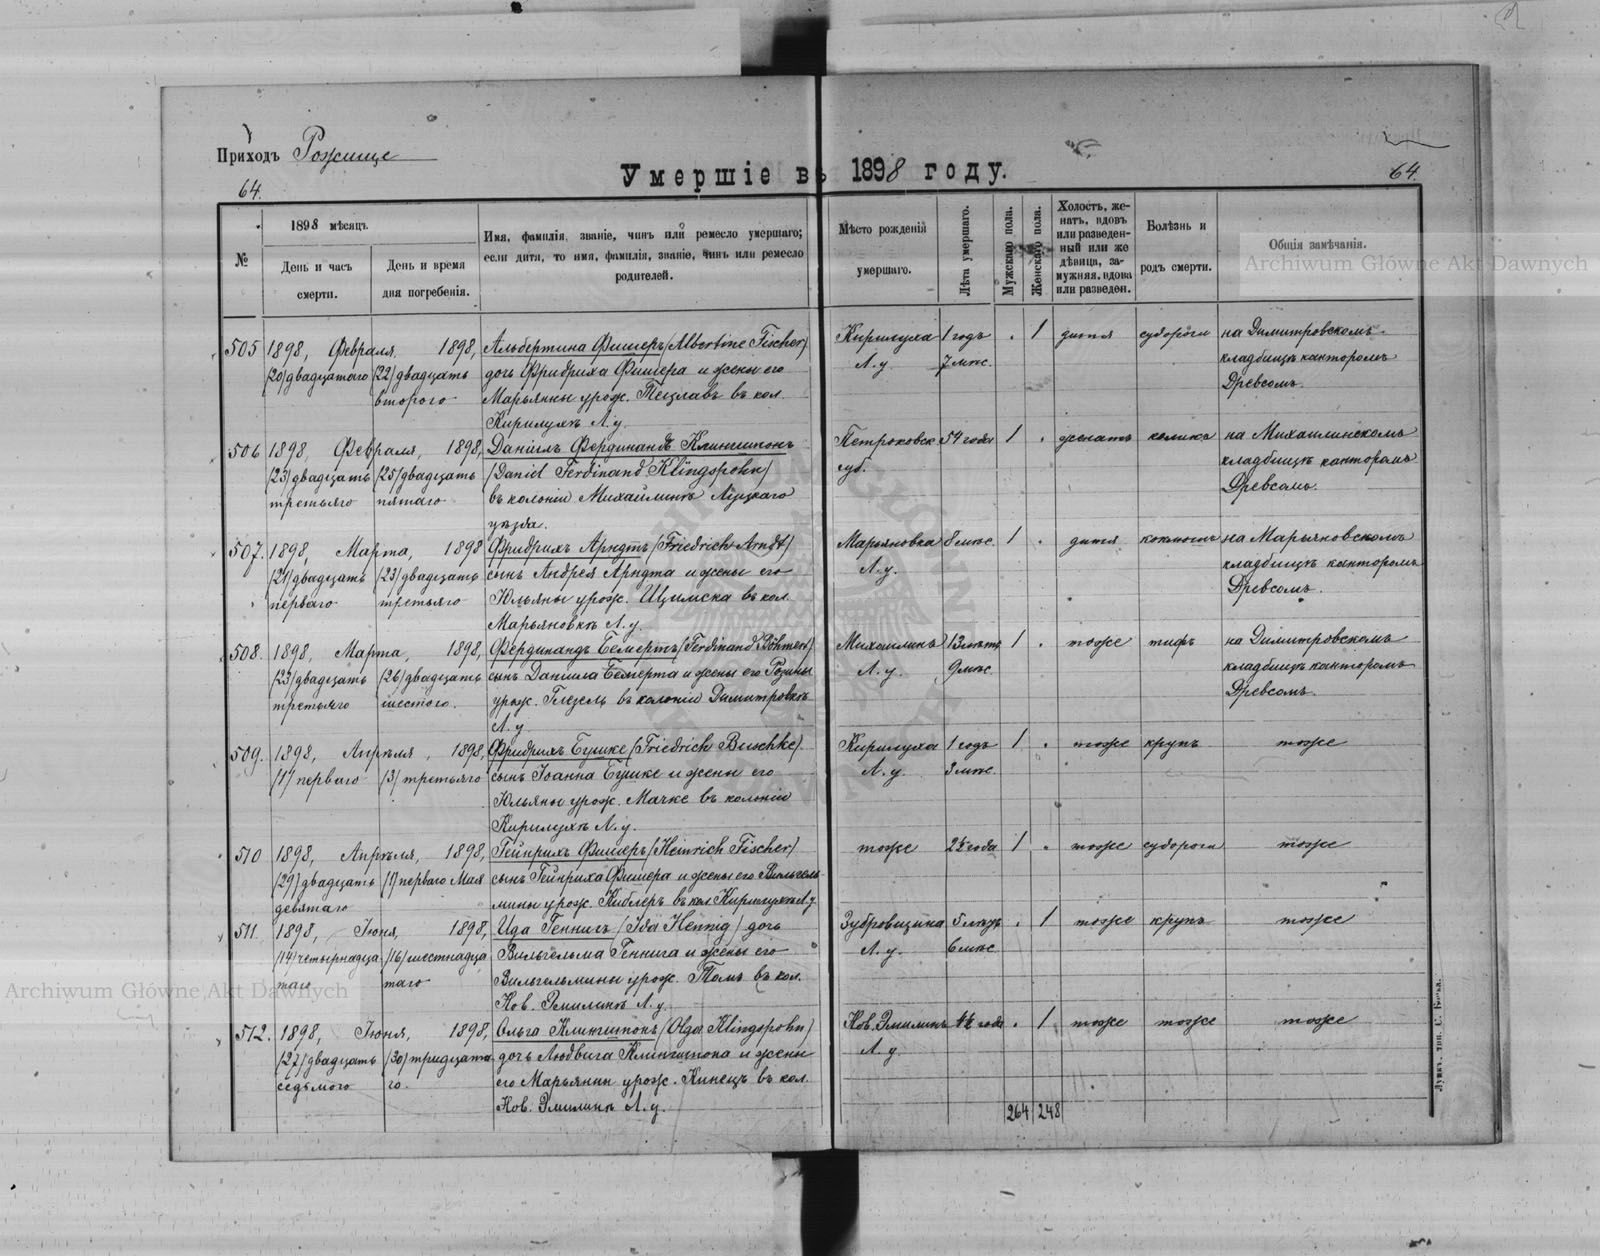 Приходъ Рожище
64.
Умершіе въ 1898 году.
64.
№
1898 мѣсяцъ
День и часъ смерти.
День и время дня погребенія.
Имя, фамилія, званіе, чинъ или ремесло умершаго;
если дитя, то имя, фамилія, званіе, чинъ или ремесло
родителей.
Мѣсто рожденія
умершаго.
Лѣта умершаго.
Мужскаго пола.
Женскаго пола.
Холостъ, же-
натъ, вдовъ
или разведен-
ный или же
дѣвица, за-
мужняя, вдова
или разведен.
Болѣзнь и
родъ смерти.
Общія замѣчанія.
Archiwum Główne Akt Dawnych
505 1898, Февраля 1898, Альбертина Фишеръ (Albertine Fischer) Кирилуха 1 годъ . 1 дитя судороги на Димитровскомъ
(20) двадцатаго (22) двадцать дочь Фридриха Фишера и жены его Л. у. 7 мѣс. кладбищѣ канторомъ
втораго Марьянны урож. Тецлавъ въ кол. Древсомъ.
Кирилухѣ Л. у.
506 1898, Февраля, 1898, Даніилъ Фердинандъ Клингшпонъ Петроковск 54 года 1 . женатъ колика на Михаилинскомъ
(23) двадцать (25) двадцать (Daniel Ferdinand Klingspohn) губ. кладбищѣ канторомъ
третьяго пятаго въ колоніи Михайлинѣ Луцкаго Древсомъ.
уѣзда.
507. 1898, Марта, 1898 Фридрихъ Арндтъ (Friedrich Arndt) Марьяновка 8 мѣс. 1 . дитя коклюшъ на Марьяновскомъ
(21) двадцать (23) двадцать сынъ Андрея Арндта и жены его Л. у. кладбищѣ канторомъ
перваго третьяго Юльяны урож. въ кол. Древсомъ.
Марьяновкѣ Л. у.
508. 1898, Марта, 1898, Фердинандъ Бемертъ (Ferdinand Böhmert) Михаилинъ 13 лѣтъ 1 . тоже тифъ на Димитровскомъ
(23) двадцать (26) двадцать сынъ Даниила Бемерта и жены его Розины Л. у. 9 мѣс. кладбищѣ канторомъ
третьяго шестого. урож. Гиезель въ колоніи Димитровкѣ Древсомъ.
Л. у
509. 1898, Апрѣля, 1898, Фридрихъ Бушке (Friedrich Buschke) Кирилуха 1 годъ 1 . тоже крупъ тоже
(1) перваго (3) третьяго сынъ Іоанна Бушке и жены его Л. у. 3 мѣс.
Юльяны урож. Мачке въ колоніи
Кирилухѣ Л. у.
510 1898, Апрѣля, 1898, Гейнрихъ Фишеръ (Heinrich Fischer) тоже 2½ года 1 . тоже судороги тоже
(29) двадцать (1) перваго Мая сынъ Гейнриха Фишера и жены его Вильгель-
девятаго мины урож. Киблеръ въ кол. Кирилухѣ Л. у
511. 1898, Іюня, 1898, Ида Геннигъ (Ida Hennig) дочь Зубровщина 5 лѣтъ . 1 тоже крупъ тоже
(14) четырнадца (16) шестнадца Вильгельма Геннига и жены его Л. у. 6 мѣс
таго таго Вильгельмины урож. Томъ въ кол.
Нов. Эмилинѣ Л. у.
512. 1898, Іюня, 1898, Ольга Клингшпонъ (Olga Klingspohn) Нов. Эмилинъ года . 1 тоже тоже тоже
(27) двадцать (30) тридцата дочь Людвига Клингшпона и жены Л. у.
седьмого го. его Марьянны урож. Кинецъ въ кол.
Нов. Эмилинѣ Л. у.
264 248
Archiwum Główne Akt Dawnych